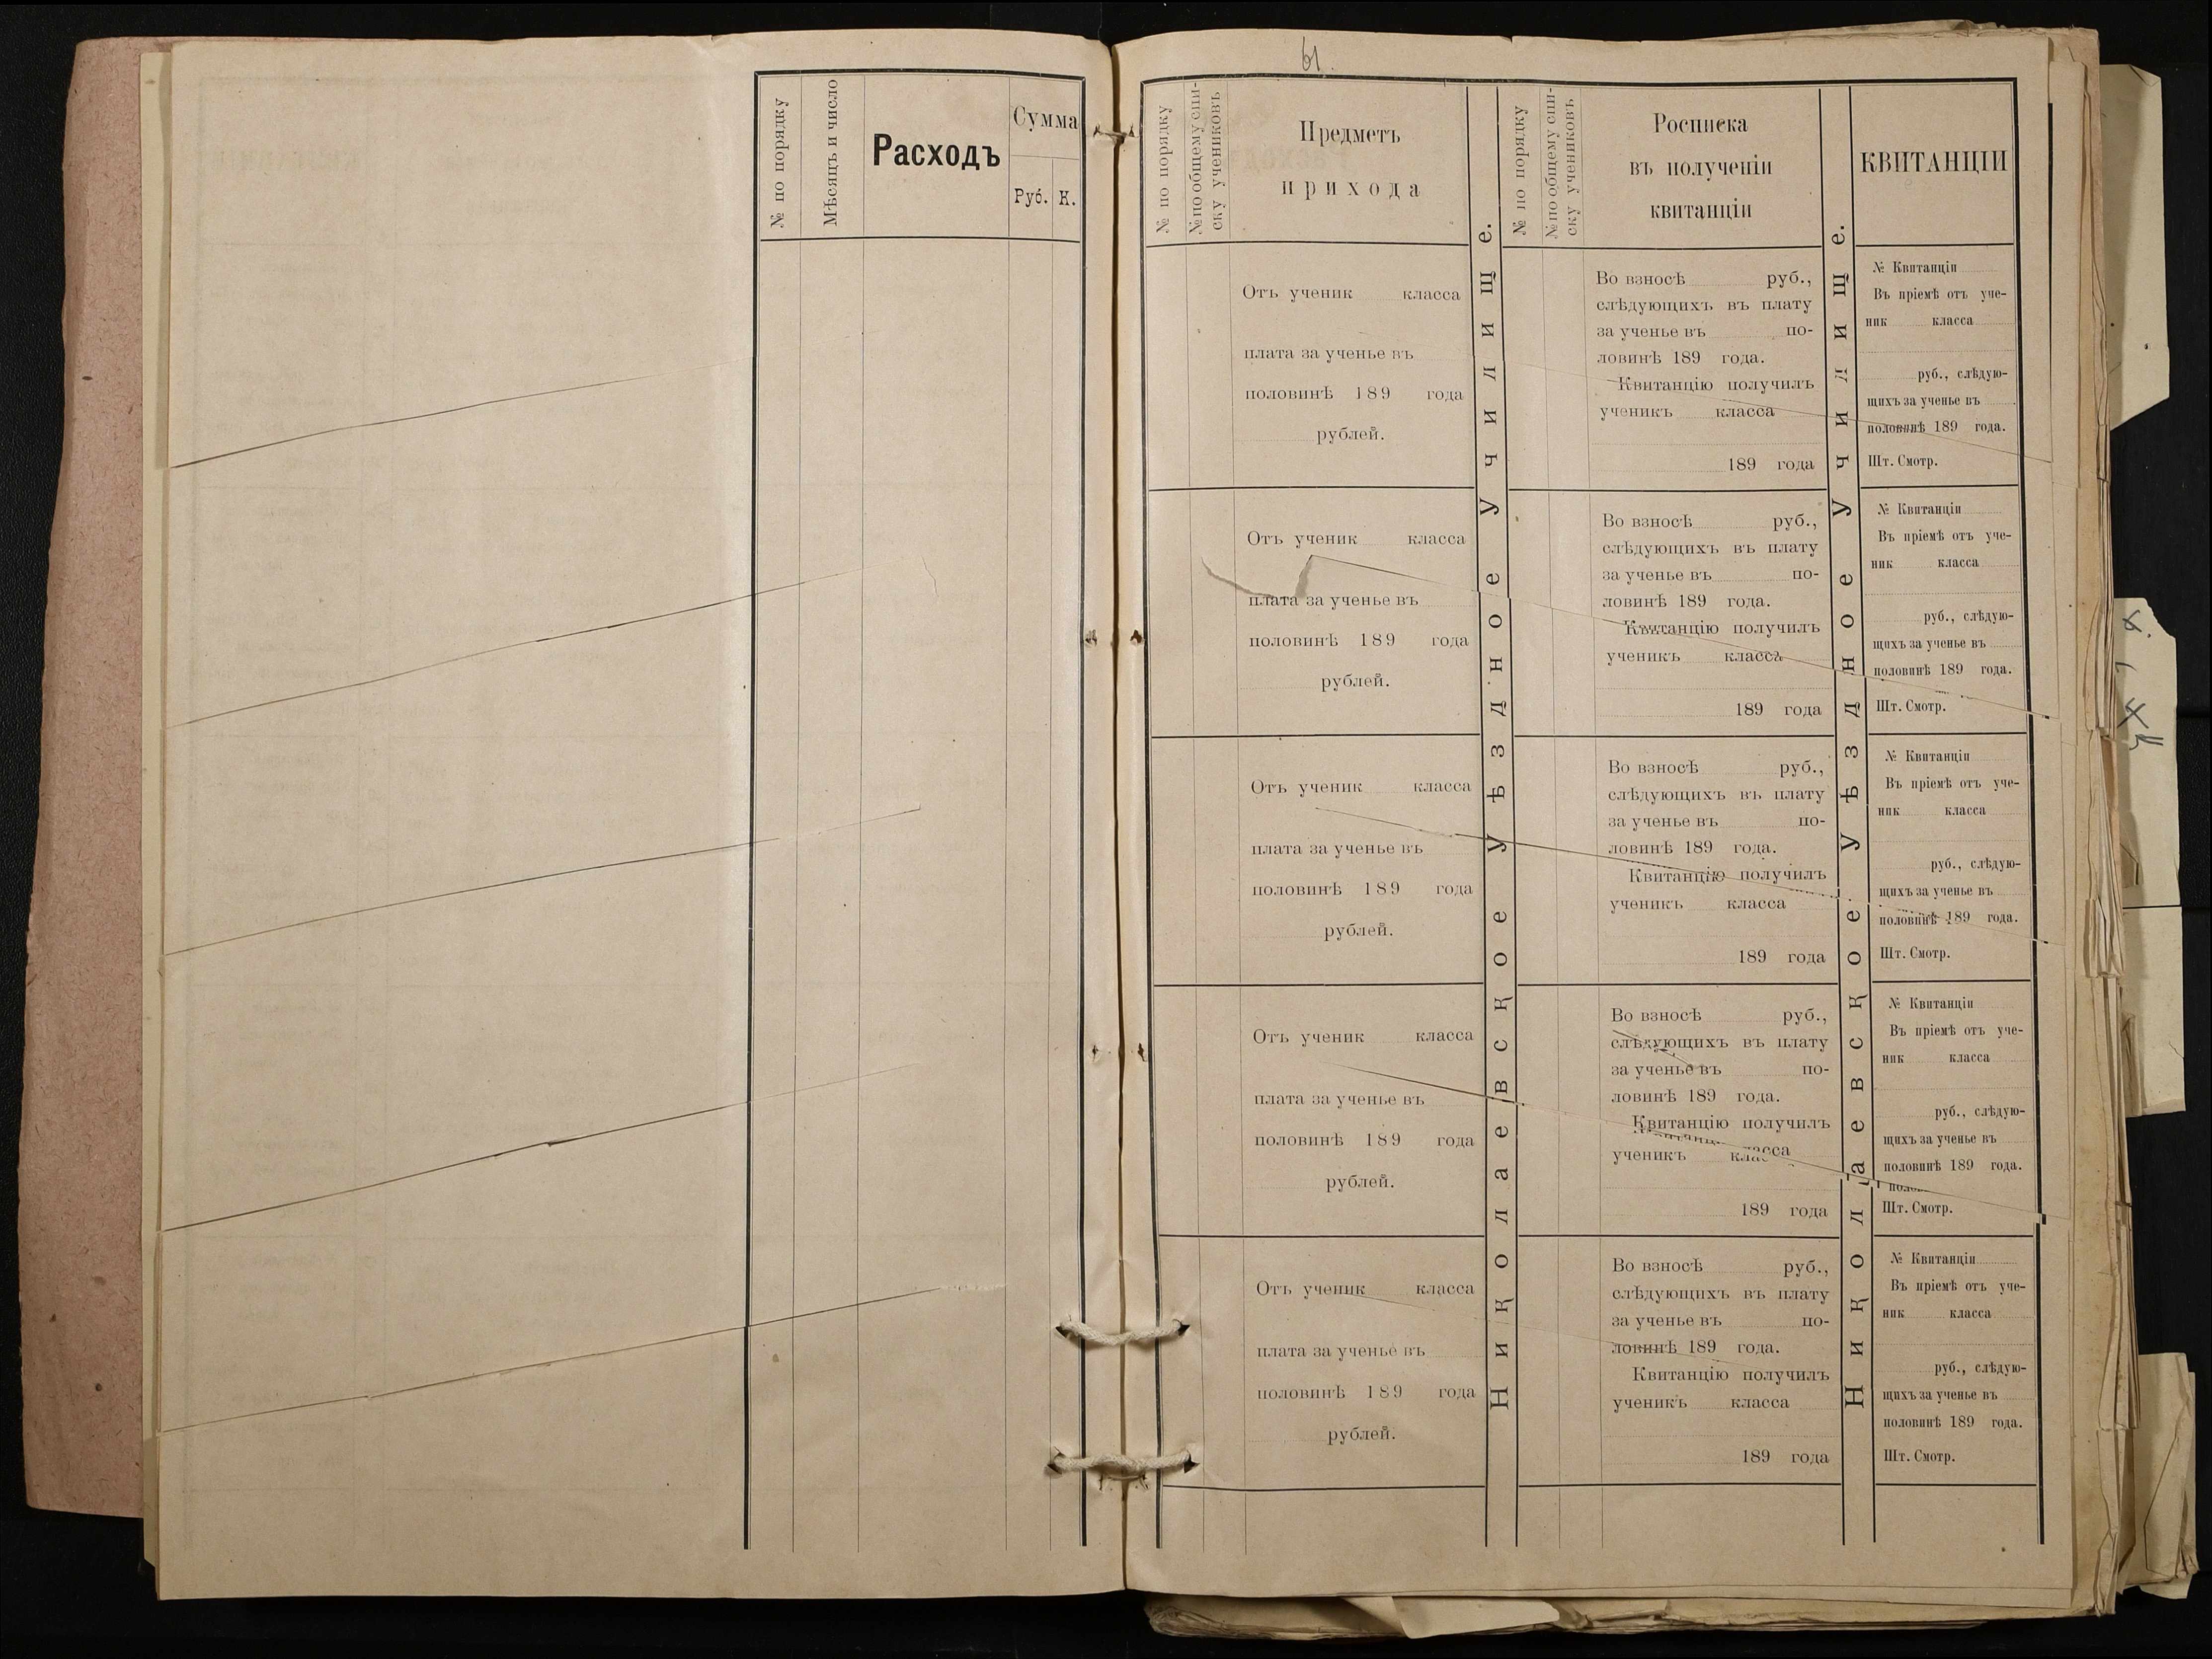 № по порядку
Мѣсяцъ и число
Расходъ
Сумма
Руб. К.
61.
№ по порядку
№ по общему спи-
ску учениковъ
Предметъ
прихода
Отъ ученик класса
плата за ученье въ
половинѣ 189 года
рублей.
Отъ ученик класса
плата за ученье въ
половинѣ 189 года
рублей.
Отъ ученик класса
плата за ученье въ
половинѣ 189 года
рублей.
Отъ ученик класса
плата за ученье въ
половинѣ 189 года
рублей.
Отъ ученик класса
плата за ученье въ
половинѣ 189 года
рублей.
Николаевское Уѣздное Училище.
№ по порядку
№ по общему спи-
ску учениковъ
Росписка
въ полученіи
квитанціи
Во взносѣ руб.,
слѣдующихъ въ плату
за ученье въ по-
ловинѣ 189 года.
Квитанцію получилъ
ученикъ класса
189 года
Во взносѣ руб.,
слѣдующихъ въ плату
за ученье въ по-
ловинѣ 189 года.
Квитанцію получилъ
ученикъ класса
189 года
Во взносѣ руб.,
слѣдующихъ въ плату
за ученье въ по-
ловинѣ 189 года.
Квитанцію получилъ
ученикъ класса
189 года
Во взносѣ руб.,
слѣдующихъ въ плату
за ученье въ по-
ловинѣ 189 года.
Квитанцію получилъ
ученикъ класса
189 года
Во взносѣ руб.,
слѣдующихъ въ плату
за ученье въ по-
ловинѣ 189 года.
Квитанцію получилъ
ученикъ класса
189 года
Николаевское Уѣздное Училище.
КВИТАНЦІИ
№ Квитанціи
Въ пріемѣ отъ уче-
ник класса
руб., слѣдую-
щихъ за ученье въ
половинѣ 189 года.
Шт. Смотр.
№ Квитанціи
Въ пріемѣ отъ уче-
ник класса
руб., слѣдую-
щихъ за ученье въ
половинѣ 189 года.
Шт. Смотр.
№ Квитанціи
Въ пріемѣ отъ уче-
ник класса
руб., слѣдую-
щихъ за ученье въ
половинѣ 189 года.
Шт. Смотр.
№ Квитанціи
Въ пріемѣ отъ уче-
ник класса
руб., слѣдую-
щихъ за ученье въ
половинѣ 189 года.
Шт. Смотр.
№ Квитанціи
Въ пріемѣ отъ уче-
ник класса
руб., слѣдую-
щихъ за ученье въ
половинѣ 189 года.
Шт. Смотр.